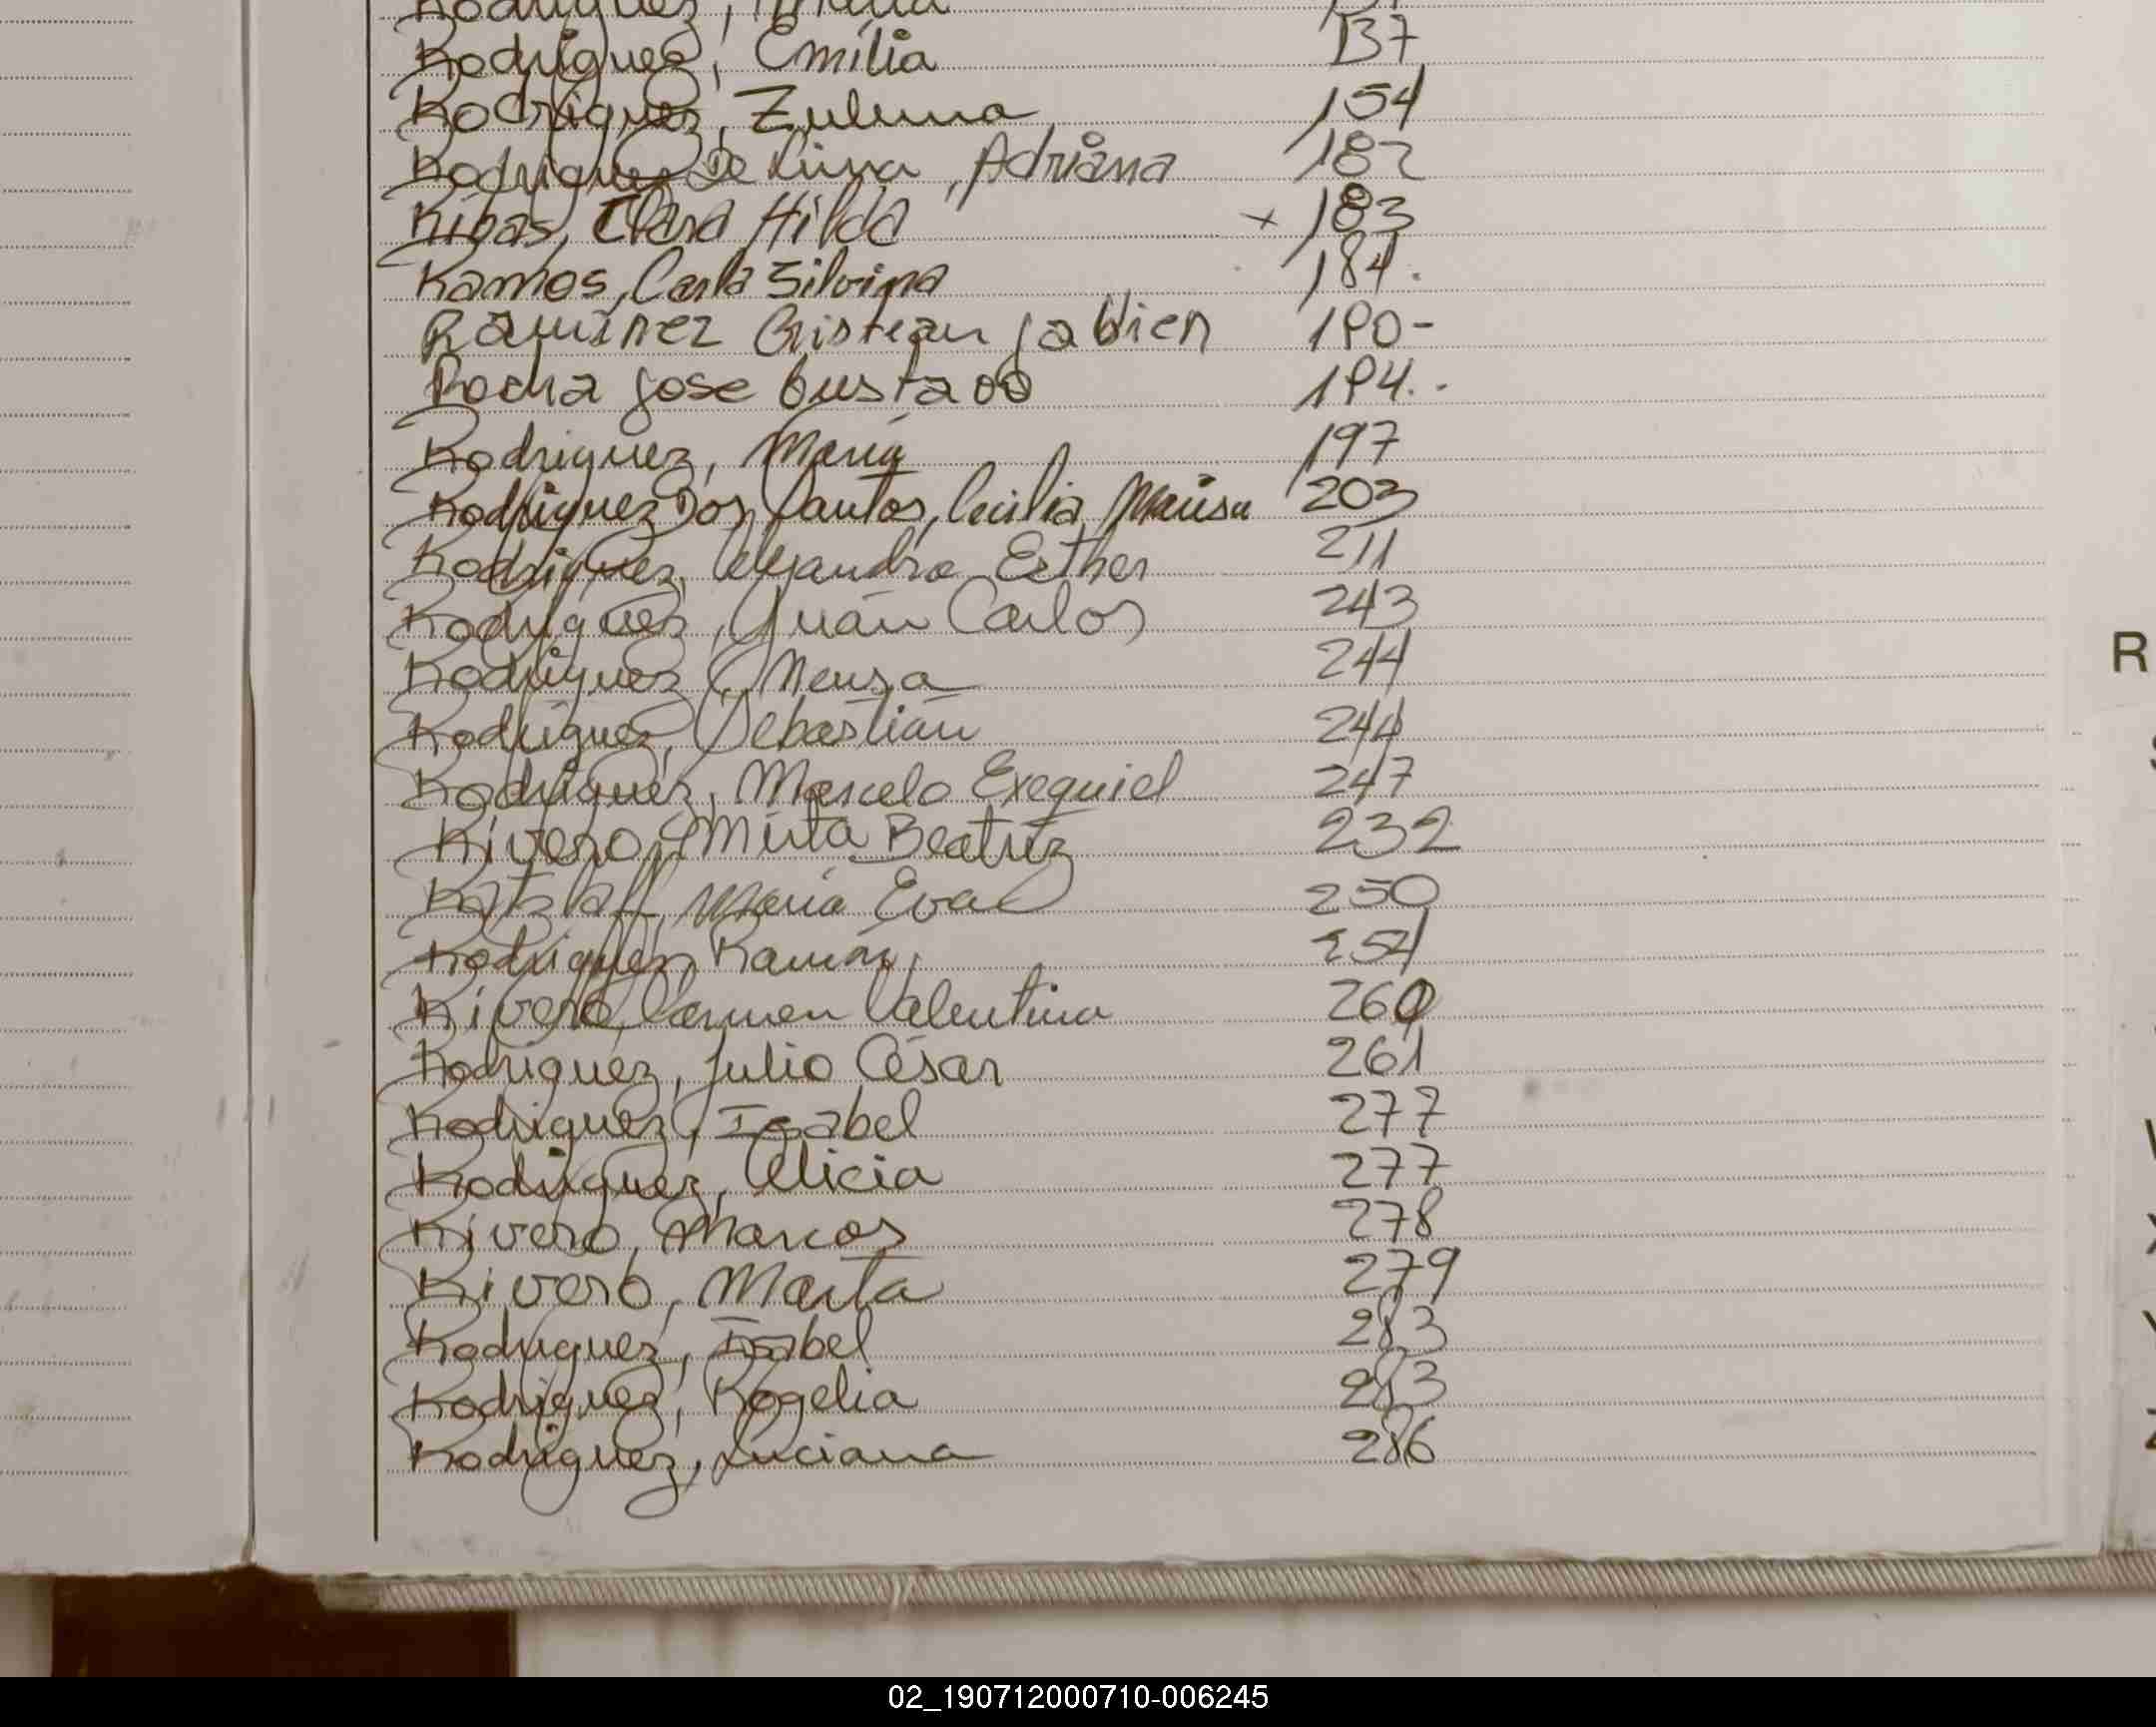 Rodriguez, María
Rodriguez, Emilia 137
Rodriguez, Zulema 154
Rodriguez De Lima, Adriana 182
Ribas, Clara Hilda x 183
Ramos, Carla Silvina 184.
Ramirez Cristian fabien 190-
Rocha jose Gustavo 194..
Rodriguez, María 197
Rodriguez Dos Santos, Cecilia Marisa 203
Rodriguez, Alejandra Esther 211
Rodriguez, Juan Carlos 243
Rodriguez, Neusa 244
Rodriguez, Sebastián 244
Rodriguez, Marcelo Exequiel 247
Rivero, Mirta Beatriz 232
María Eva 250
Rodriguez, Ramón 254
Rivero, Carmen Valentina 260
Rodriguez, Julio César 261
Rodriguez, Isabel 277
Rodriguez, Alicia 277
Rivero, Marcos 278
Rivero, Marta 279
Rodriguez, Isabel 283
Rodriguez, Rogelia 283
Rodriguez, Luciana 286
R
X
Y
Z
02_190712000710-006245